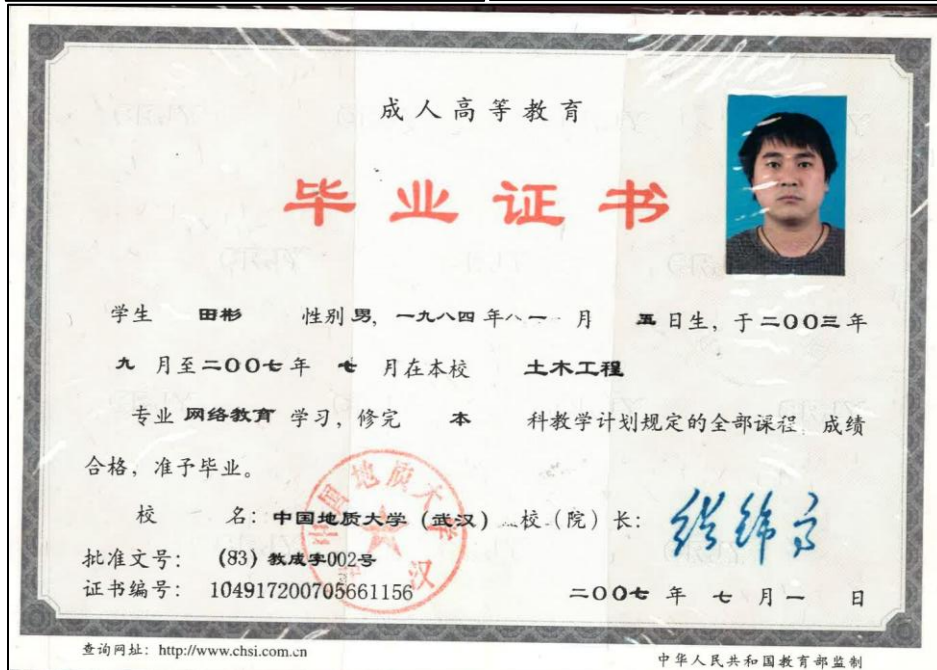 成人高等教育
毕业证书
学生 田彬 性别 男, 一九八四 年 一 月 五 日生, 于 二〇〇三 年
九 月至 二〇〇七 年 七 月在本校 土木工程
专业 网络教育 学习, 修完 本 科教学计划规定的全部课程, 成绩
合格, 准予毕业。
校 名: 中国地质大学 (武汉) 校 (院) 长:
批准文号: (83) 教成字002号
证书编号: 104917200705661156 二〇〇七 年 七 月 一 日
查询网址: http://www.chsi.com.cn
中华人民共和国教育部监制